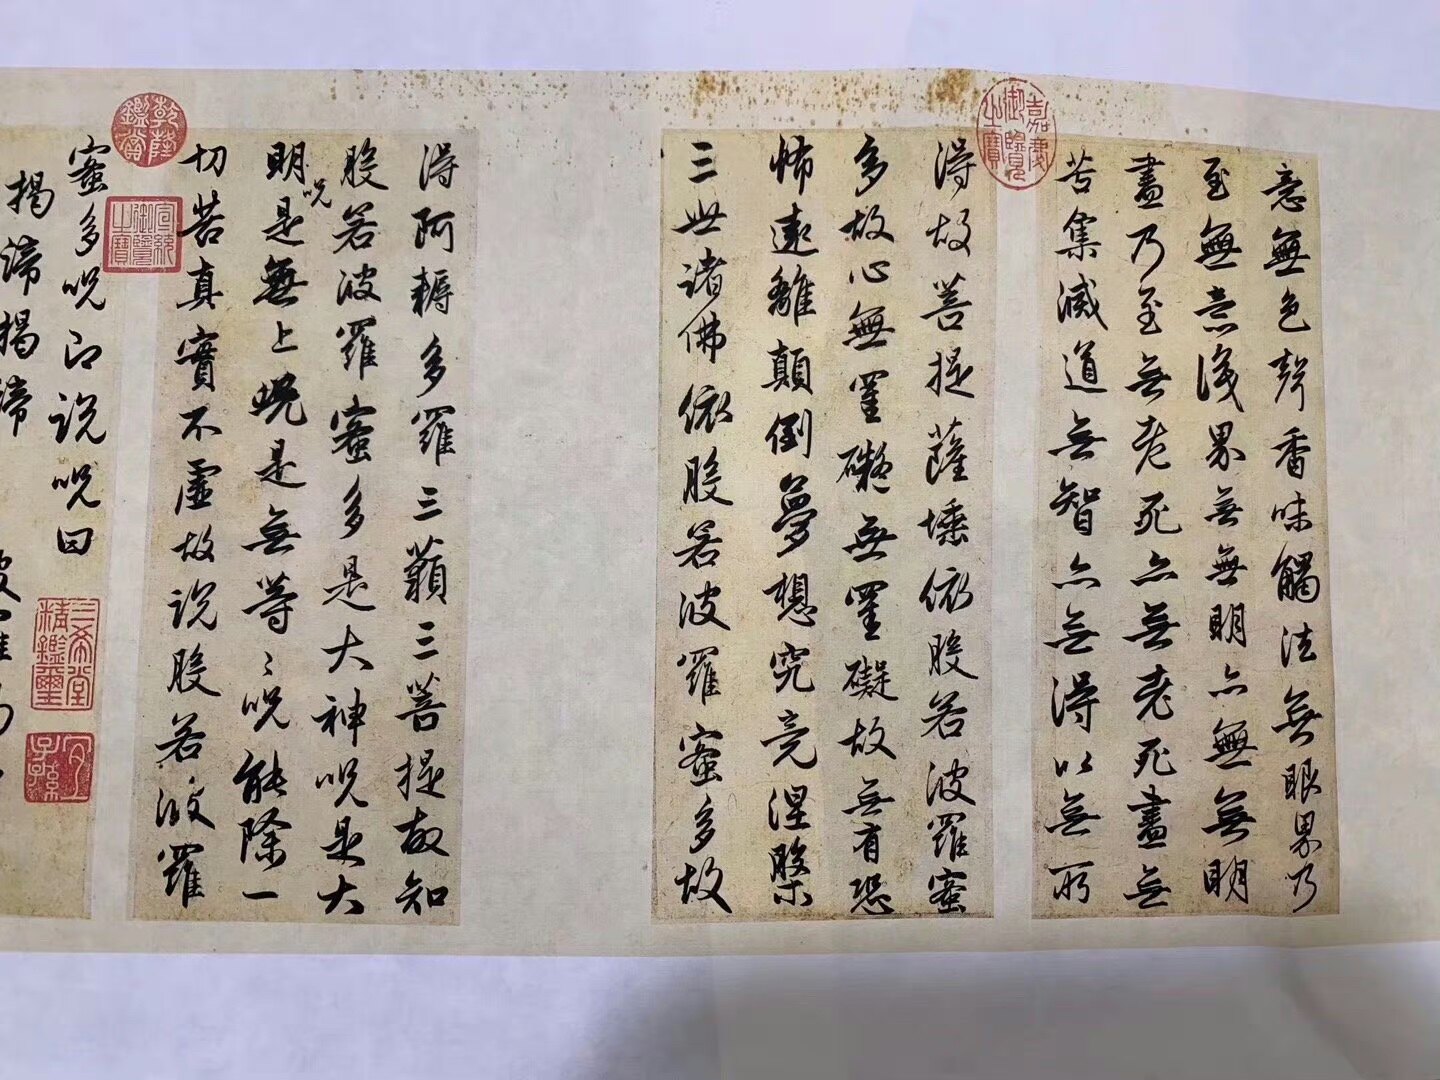 意無色聲香味觸法無眼界乃
至無意識界無無明亦無無明
盡乃至無老死亦無老死盡無
苦集滅道無智亦無得以無所
得故菩提薩埵依般若波羅蜜
多故心無罣礙無罣礙故無有恐
怖遠離顛倒夢想究竟涅槃
三世諸佛依般若波羅蜜多故
得阿耨多羅三藐三菩提故知
般若波羅蜜多是大神呪是大
明呪是無上呪是無等等呪能除一
切苦真實不虛故說般若波羅
蜜多呪即說呪曰
揭諦揭諦
嘉慶御覽之寶
乾隆鑑賞
宣統御覽之寶
三希堂精鑑璽
宜子孫